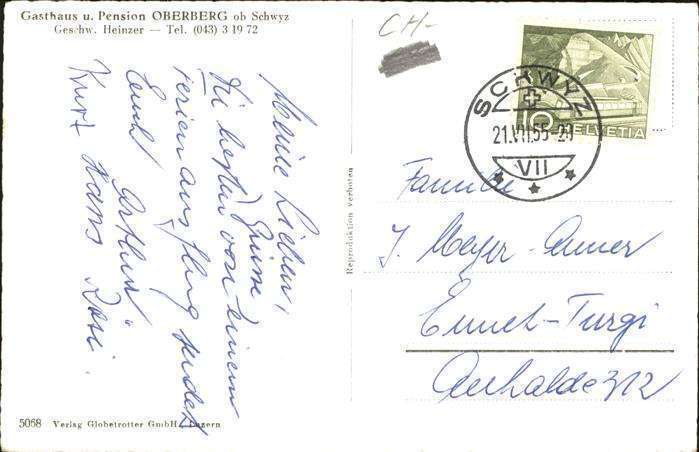 Gasthaus u. Pension OBERBERG ob Schwyz
Geschw. Heinzer — Tel. (043) 3 19 72
Meine Lieben,
Die besten Grüsse
von einem
Ferienausflug sendet
Euch Arthur
Kurt Hans Rosi.
5058 Verlag Globetrotter GmbH, Luzern
Reproduktion verboten
CH-
SCHWYZ
21.VII.55-20
VII
10 HELVETIA
Familie
J. Meyer-
Ennet-Turgi
312